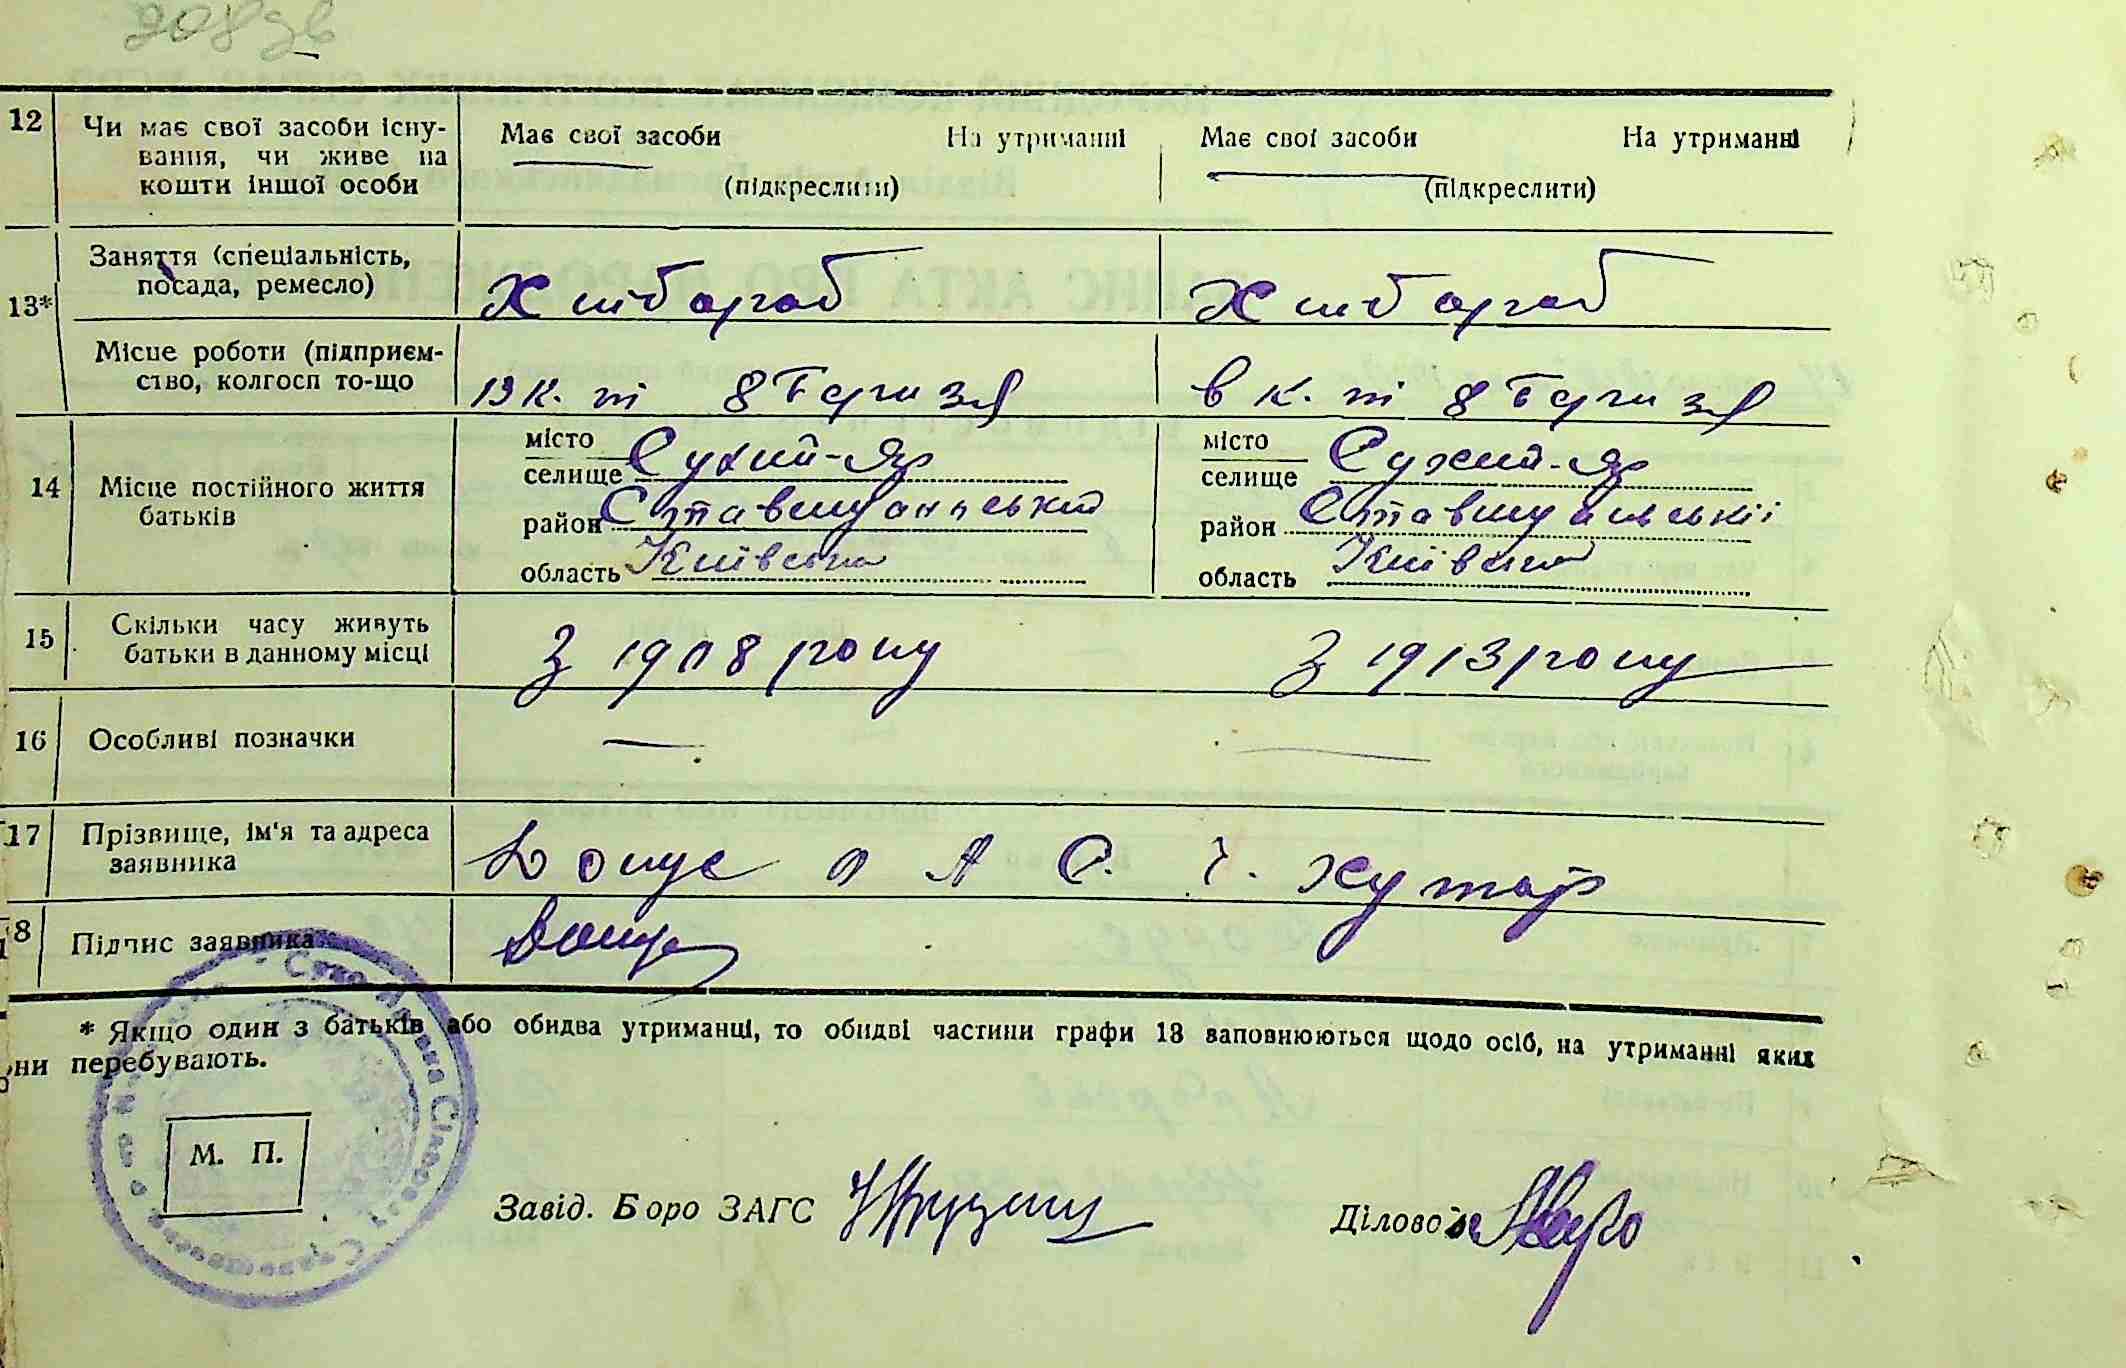 208 зв
12 Чи має свої засоби існу-
вання, чи живе на
кошти іншої особи
Має свої засоби На утриманні
(підкреслити)
Має свої засоби На утриманні
(підкреслити)
13* Заняття (спеціальність,
посада, ремесло)
Хлібороб Хлібороб
Місце роботи (підприєм-
ство, колгосп то-що
в к. г 8 Березня в к. г 8 Березня
14 Місце постійного життя
батьків
місто
селище Сухий-Яр
район Ставищанський
область Київська
місто
селище Сухий-Яр
район Ставищанській
область Київська
15 Скільки часу живуть
батьки в данному місці
З 1908 року З 1913 року
16 Особливі позначки
— —
17 Прізвище, ім'я та адреса
заявника
С. Хутор
18 Підпис заявника
* Якщо один з батьків або обидва утриманці, то обидві частини графи 13 заповнюються щодо осіб, на утриманні яких
ни перебувають.
М. П.
Завід. Бюро ЗАГС
Діловод